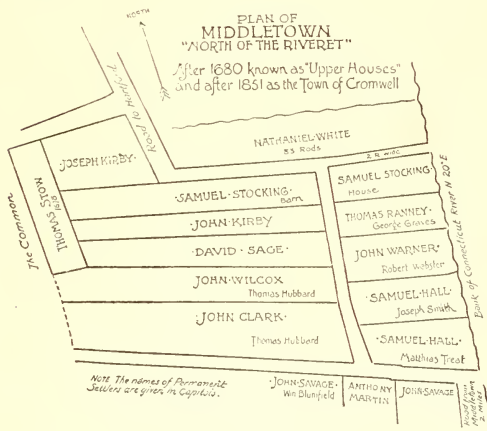 NORTH
PLAN OF
MIDDLETOWN
"NORTH OF THE RIVERET"
After 1680 known as "Upper Houses"
and after 1851 as the Town of Cromwell
Road to Hartford
NATHANIEL·WHITE
33 Rods
2 R wide
JOSEPH KIRBY·
The Common
THOMAS STOW
·SAMUEL·STOCKING·
Barn
·JOHN·KIRBY
·DAVID·SAGE·
JOHN·WILCOX
Thomas Hubbard
·JOHN CLARK·
Thomas Hubbard
SAMUEL STOCKING·
House
THOMAS RANNEY·
George Graves
JOHN WARNER·
Robert Webster
·SAMUEL·HALL·
Joseph Smith
·SAMUEL·HALL·
Matthias Treat
Bank of Connecticut River N 20°E
Note The names of Permanent
Settlers are given in Capitals.
·JOHN·SAVAGE·
Wm Blumfield
ANTHONY
MARTIN
JOHN·SAVAGE
Road from
Middletown
2 Miles